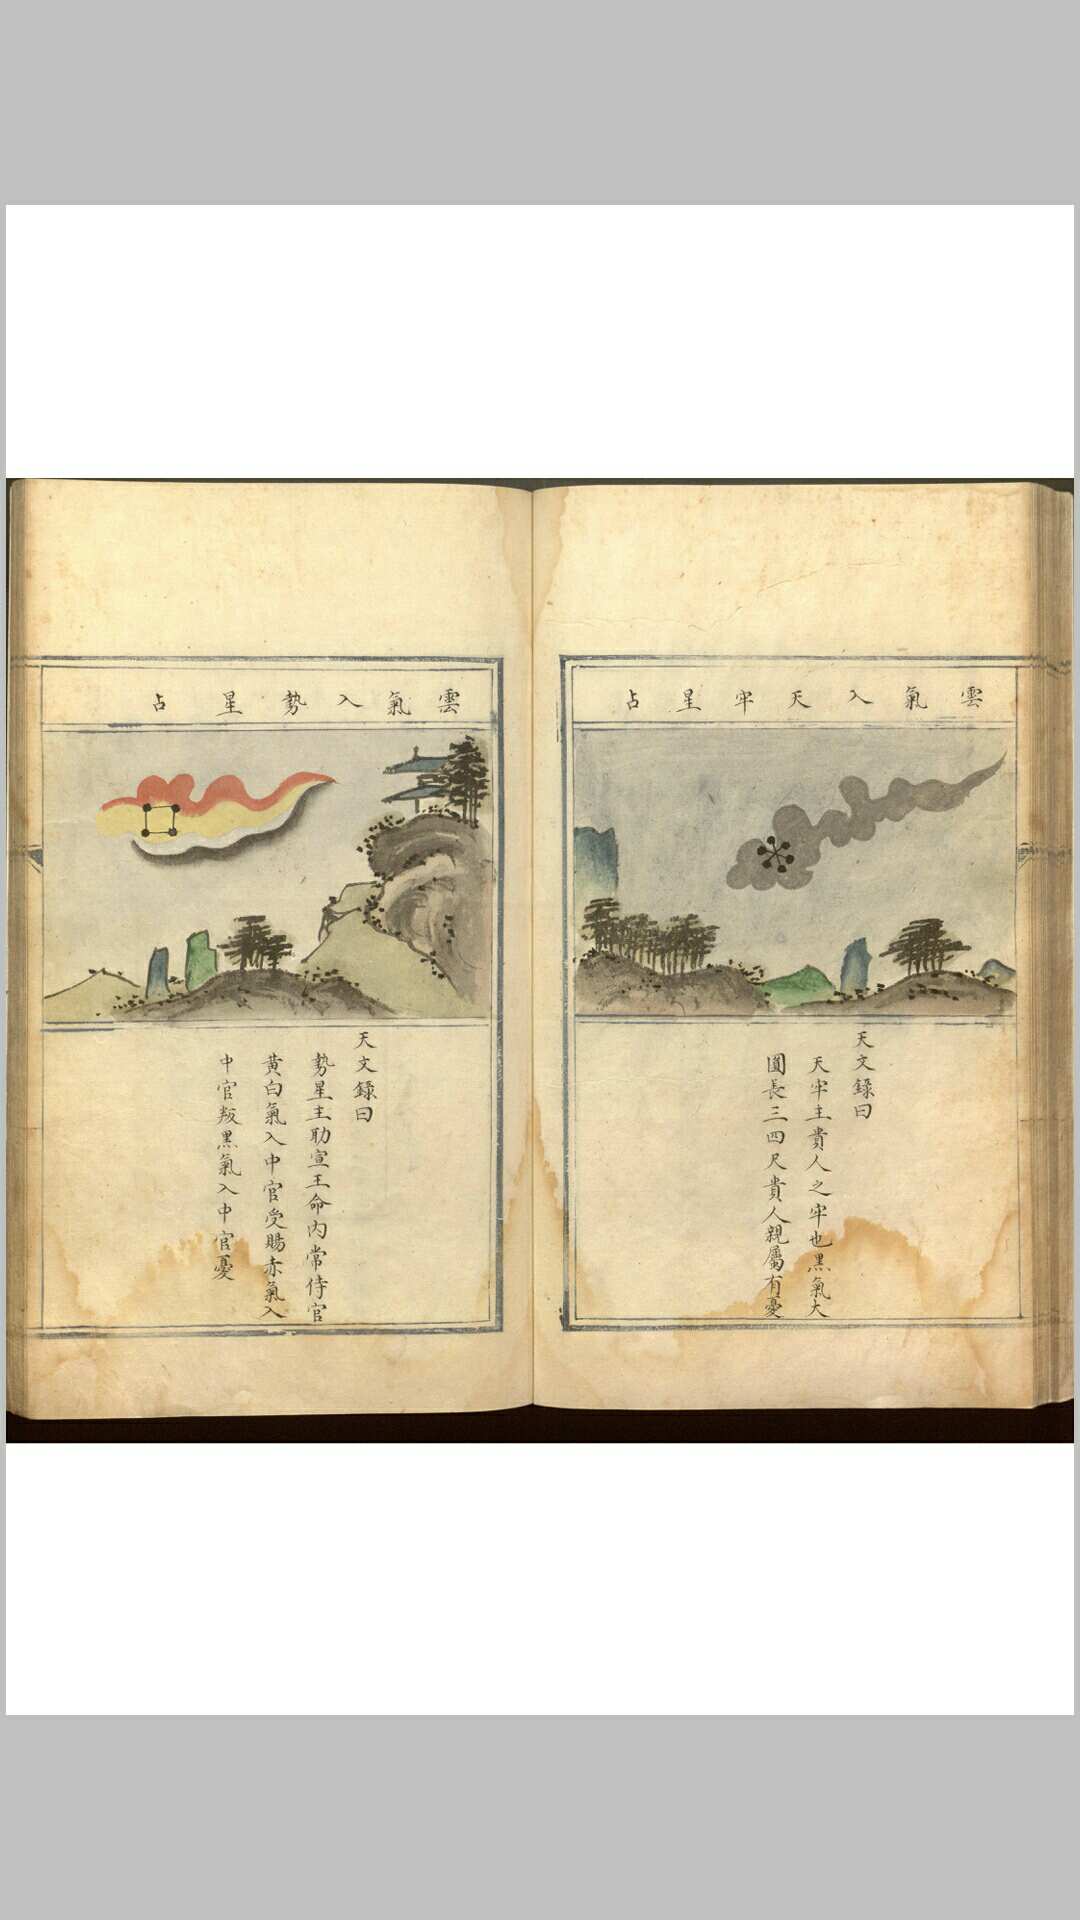 雲氣入天牢星占
天文録曰
天牢主貴人之牢也黒氣大
圓長三四尺貴人親屬有憂
雲氣入勢星占
天文録曰
勢星主助宣王命内常侍官
黄白氣入中官受賜赤氣入
中官叛黒氣入中官憂